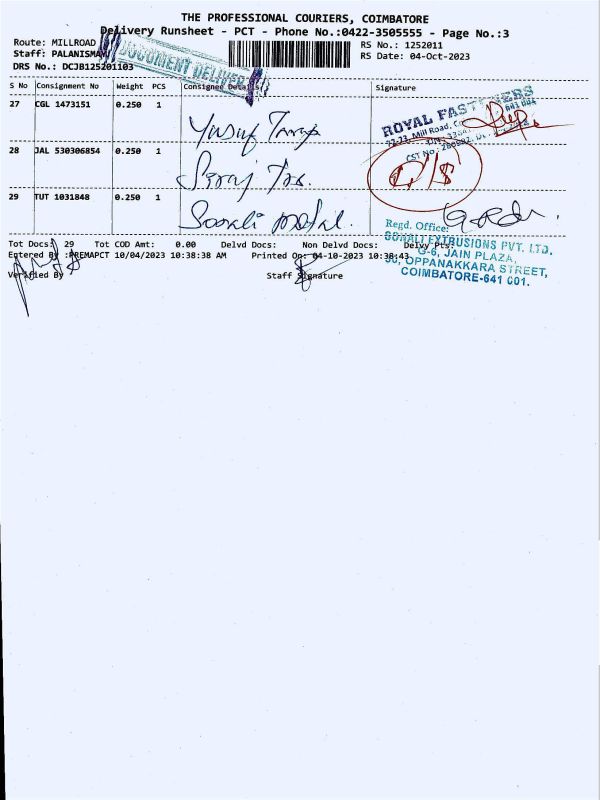 THE PROFESSIONAL COURIERS, COIMBATORE
Delivery Runsheet - PCT - Phone No.:0422-3505555 - Page No.:3
Route: MILLROAD
RS No.: 1252011
Staff: PALANISMAY
RS Date: 04-Oct-2023
DRS No.: DCJB125201103
DOCUMENT DELIVER
S No Consignment No Weight PCS Consignee Details Signature
27 CGL 1473151 0.250 1
Yusuf
ROYAL FASTENERS
22-23, Mill Road,
CST No.:
28 JAL 530306854 0.250 1
Siraj
29 TUT 1031848 0.250 1
Sonali
Regd. Office:
SONALI EXTRUSIONS PVT. LTD.
G-6, JAIN PLAZA,
OPPANAKKARA STREET,
COIMBATORE-641 001.
Tot Docs: 29 Tot COD Amt: 0.00 Delvd Docs: Non Delvd Docs: Delvy Pts:
Entered By :PREMAPCT 10/04/2023 10:38:38 AM Printed On: 04-10-2023 10:38:43
Verified By Staff Signature